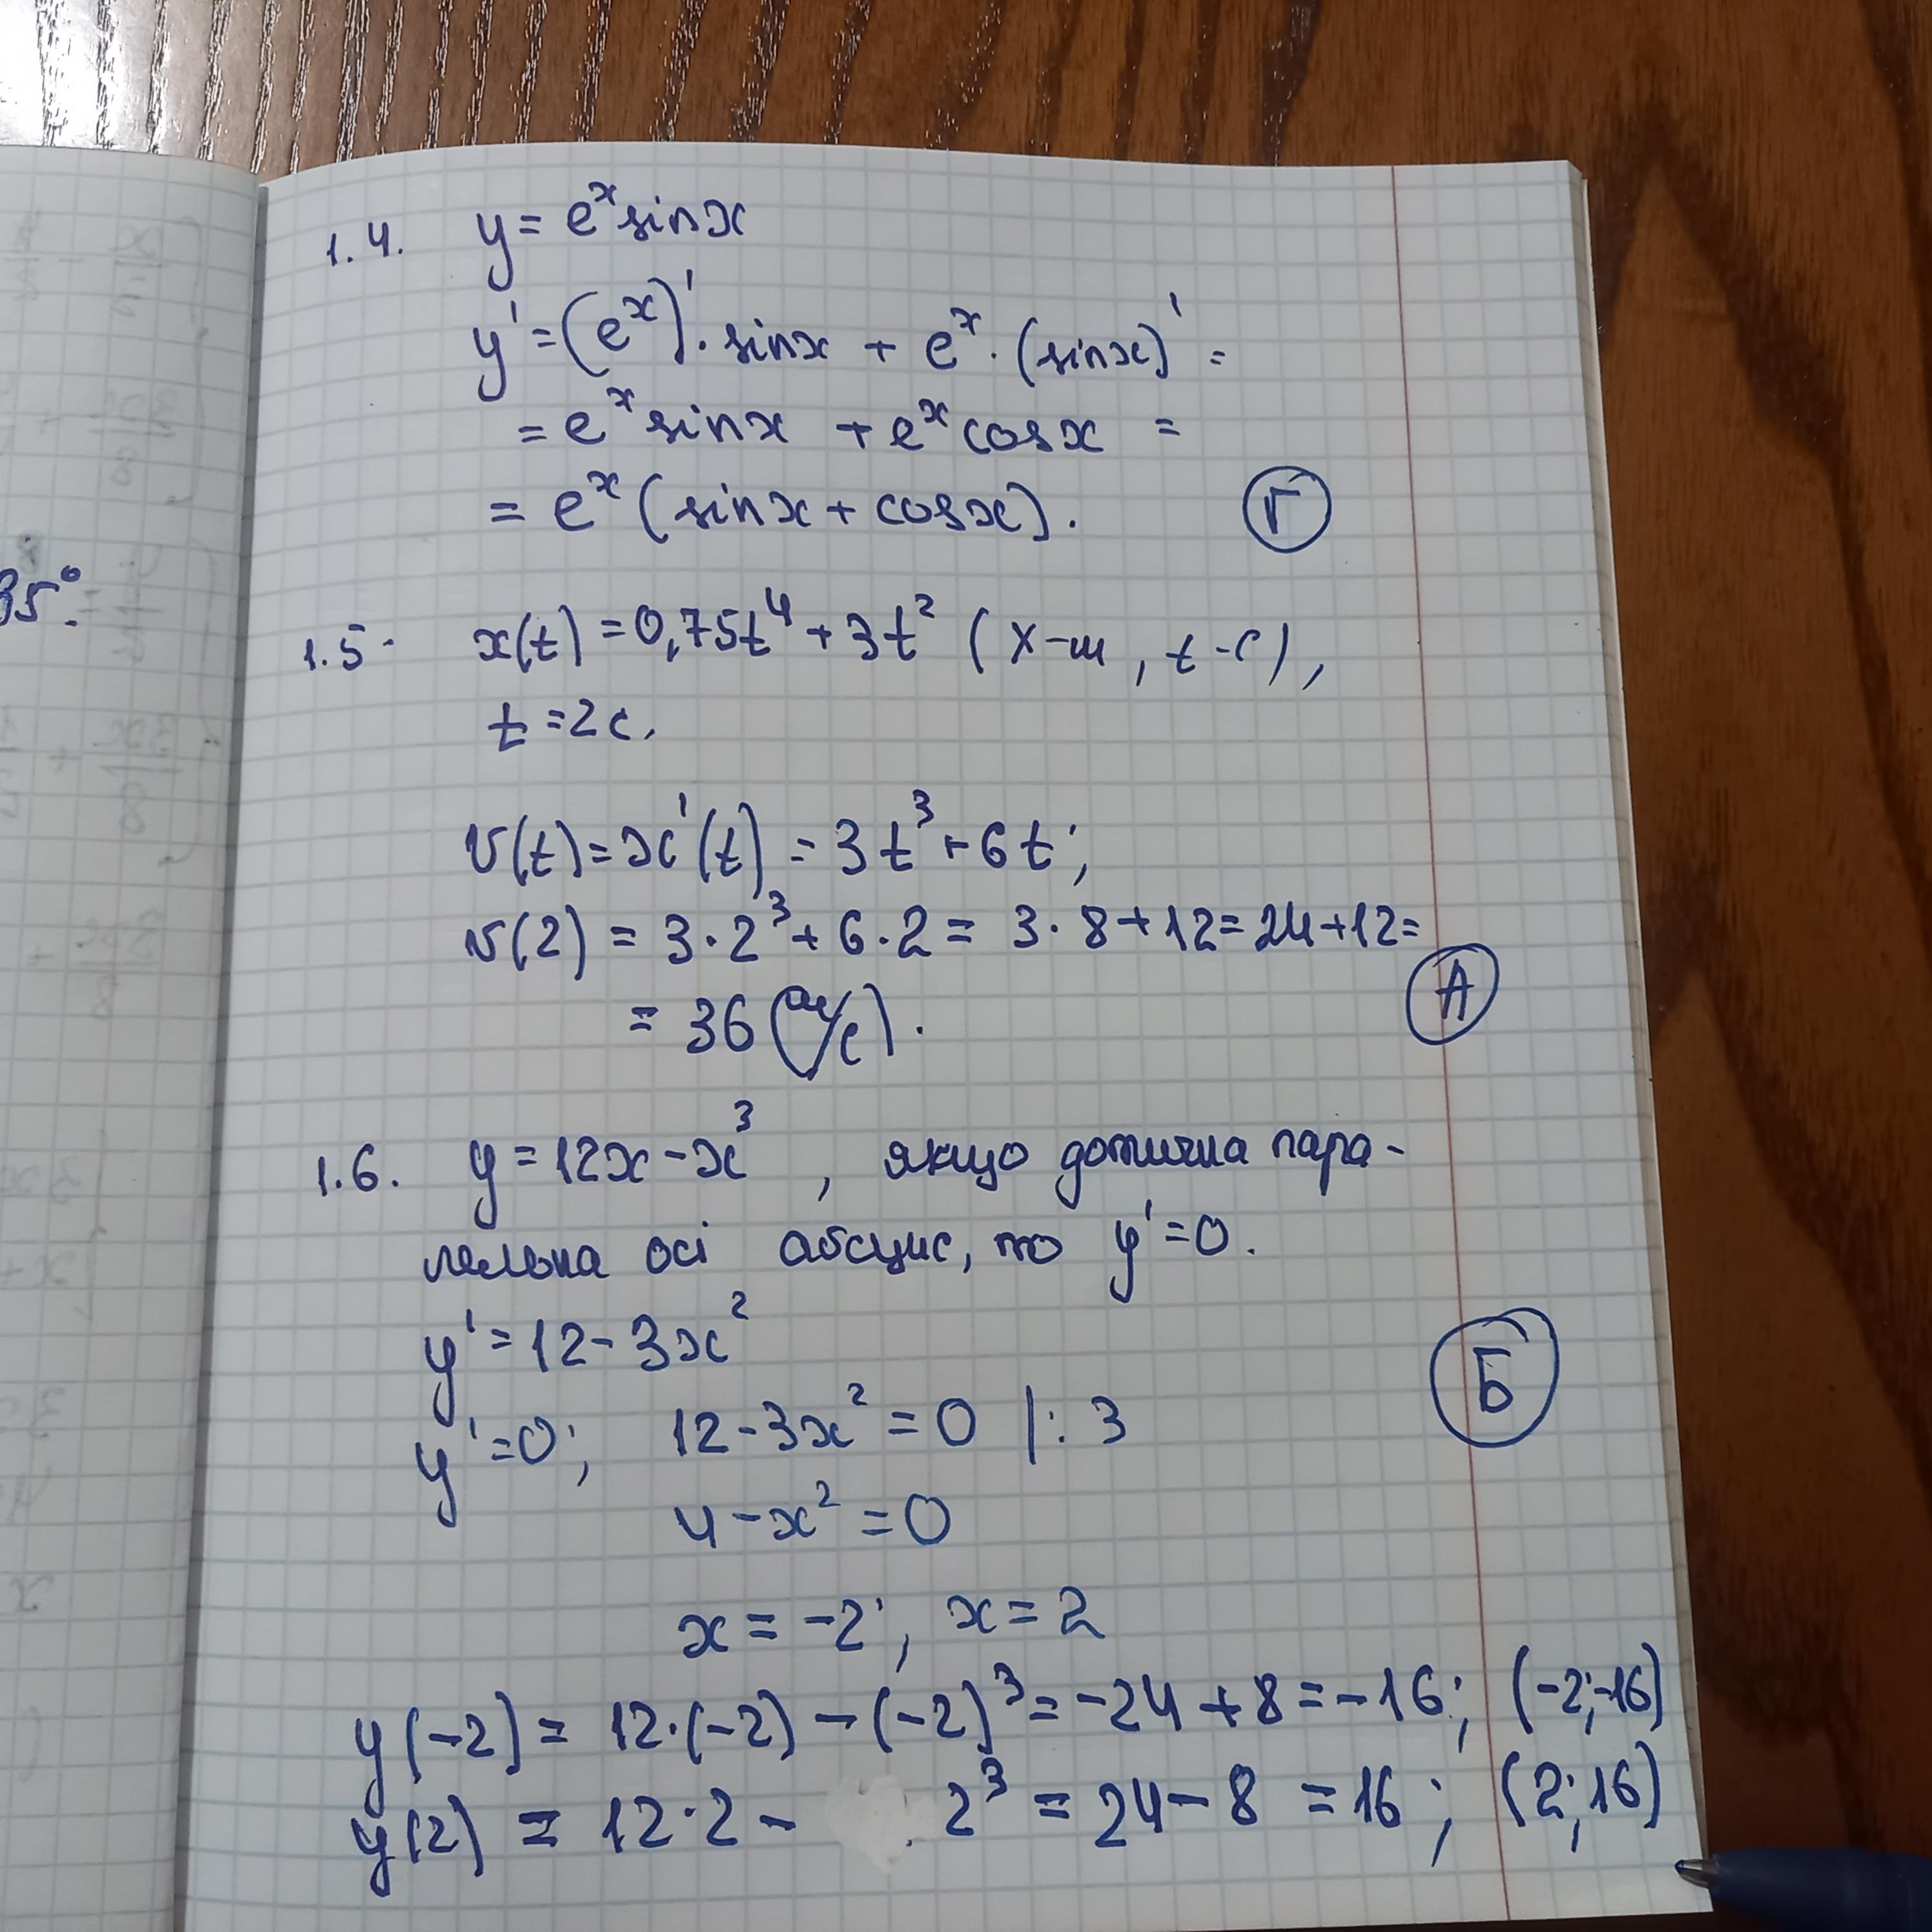 35°.
1.4. y = eˣ sinx
y' = (eˣ)' · sinx + eˣ · (sinx)' =
= eˣ sinx + eˣ cosx =
= eˣ (sinx + cosx). Г
1.5. x(t) = 0,75t⁴ + 3t² (x-м, t-c),
t = 2c.
v(t) = x'(t) = 3t³ + 6t;
v(2) = 3·2³ + 6·2 = 3·8 + 12 = 24 + 12 =
= 36 (м/c). А
1.6. y = 12x - x³, якщо дотична пара-
лельна осі абсцис, то y' = 0.
y' = 12 - 3x²
y' = 0; 12 - 3x² = 0 |: 3 Б
4 - x² = 0
x = -2; x = 2
y(-2) = 12·(-2) - (-2)³ = -24 + 8 = -16; (-2;-16)
y(2) = 12·2 - 2³ = 24 - 8 = 16; (2;16)